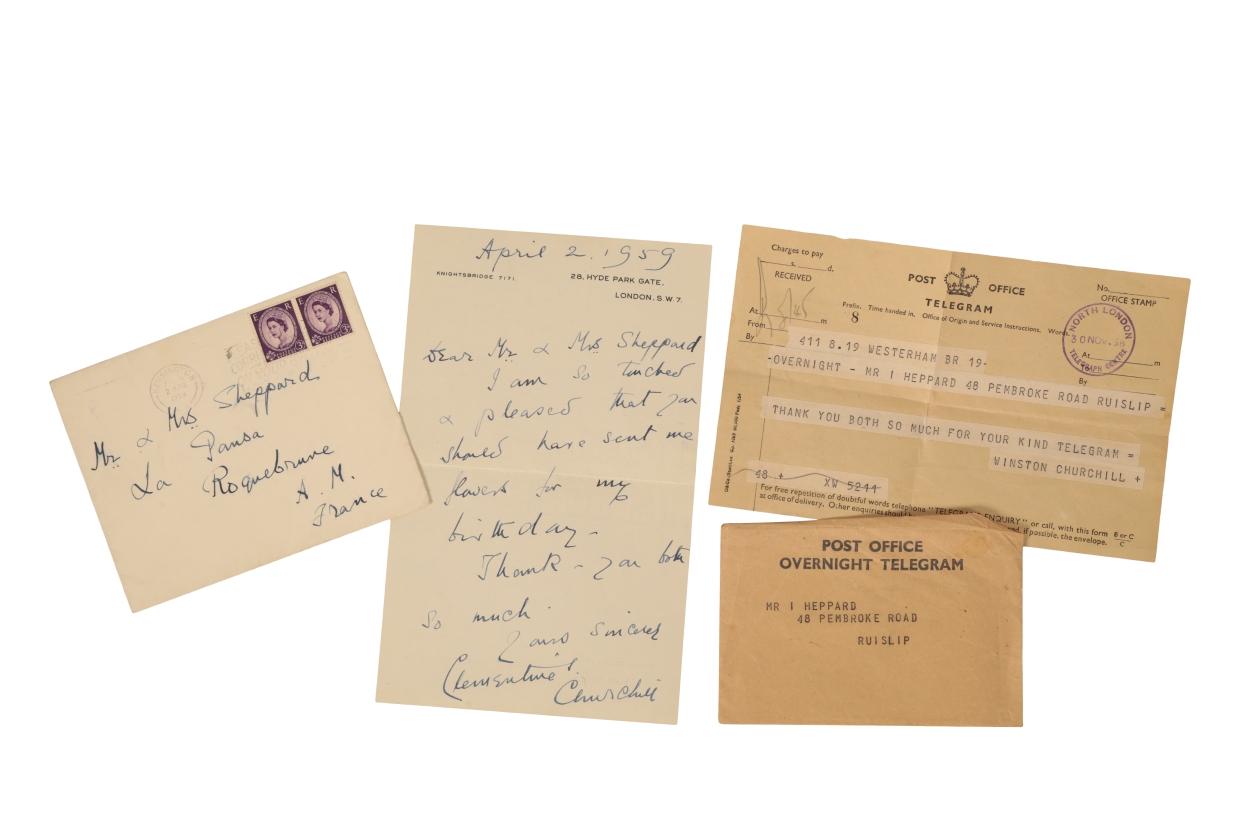 E R
E R
3D
3D
Mr & Mrs Sheppard
La Pausa
Roquebrune
A. M.
France
April 2. 1959
KNIGHTSBRIDGE 7171.
28, HYDE PARK GATE,
LONDON, S.W.7.
Dear Mr & Mrs Sheppard
I am so touched
& pleased that you
should have sent me
flowers for my
birthday -
Thank - you both
so much.
Yours sincerely
Clementine S.
Churchill
Charges to pay
s. d.
RECEIVED
POST OFFICE
TELEGRAM
No.
OFFICE STAMP
Prefix. Time handed in. Office of Origin and Service Instructions. Words.
8
At m
From
By
NORTH LONDON
30 NOV. 58
TELEGRAPH CENTRE
At m
By
411 8.19 WESTERHAM BR 19-
-OVERNIGHT - MR I HEPPARD 48 PEMBROKE ROAD RUISLIP =
THANK YOU BOTH SO MUCH FOR YOUR KIND TELEGRAM =
WINSTON CHURCHILL +
48 + XW 5244
For free repetition of doubtful words telephone "TELEGRAMS ENQUIRY" or call, with this form
at office of delivery. Other enquiries should if possible, the envelope.
B or C
C
POST OFFICE
OVERNIGHT TELEGRAM
MR I HEPPARD
48 PEMBROKE ROAD
RUISLIP